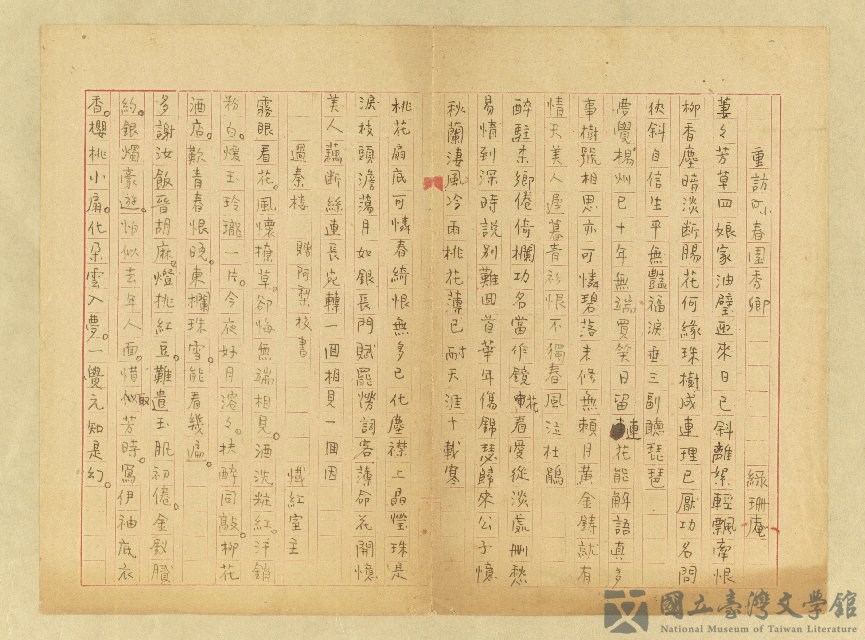 重訪小春園香卿　綠珊庵
萋々芳草四娘家油壁迎來日已斜離絮輕飄牽恨
柳香塵暗淡斷腸花何緣珠樹成連理已厭功名問
狹斜自信生平無豔福淚垂三副聽琵琶
夢覺楊州已十年無端買笑日留連花能解語真多
事樹號相思亦可憐碧落未修無賴月黃金鑄就有
情天美人遲暮青衫恨不獨春風泣杜鵑
醉駐柔鄉倦倚欄功名當作鏡花看愛從淡處刪愁
易情到深時說別難回首華年傷錦瑟歸來公子憶
秋蘭淒風冷雨桃花薄已耐天涯十載寒
桃花扇底可憐春綺恨無多已化塵襟上晶瑩珠是
淚枝頭澹蕩月如銀長門賦罷勞詞客薄命花開憶
美人藕斷絲連長宛轉一回相見一回因
過秦樓　贈阿梨校書　懺紅室主
霧眼看花。風懷撩草。卻悔無端相見。酒洗粧紅。汗銷
粉白。煖玉玲瓏一片。今夜好月濃々。扶醉同敲。柳花
酒店。歡青春恨晚。東欄珠雪。能看幾遍。
多謝汝飯晉胡麻。燈挑紅豆。難遣玉肌初倦。金釵賸
約。銀燭豪遊。怕似去年人面。惜取芳時。寫伊袖底衣
香。櫻桃小扇。化朵雲入夢。一覺元知是幻。
國立臺灣文學館
National Museum of Taiwan Literature